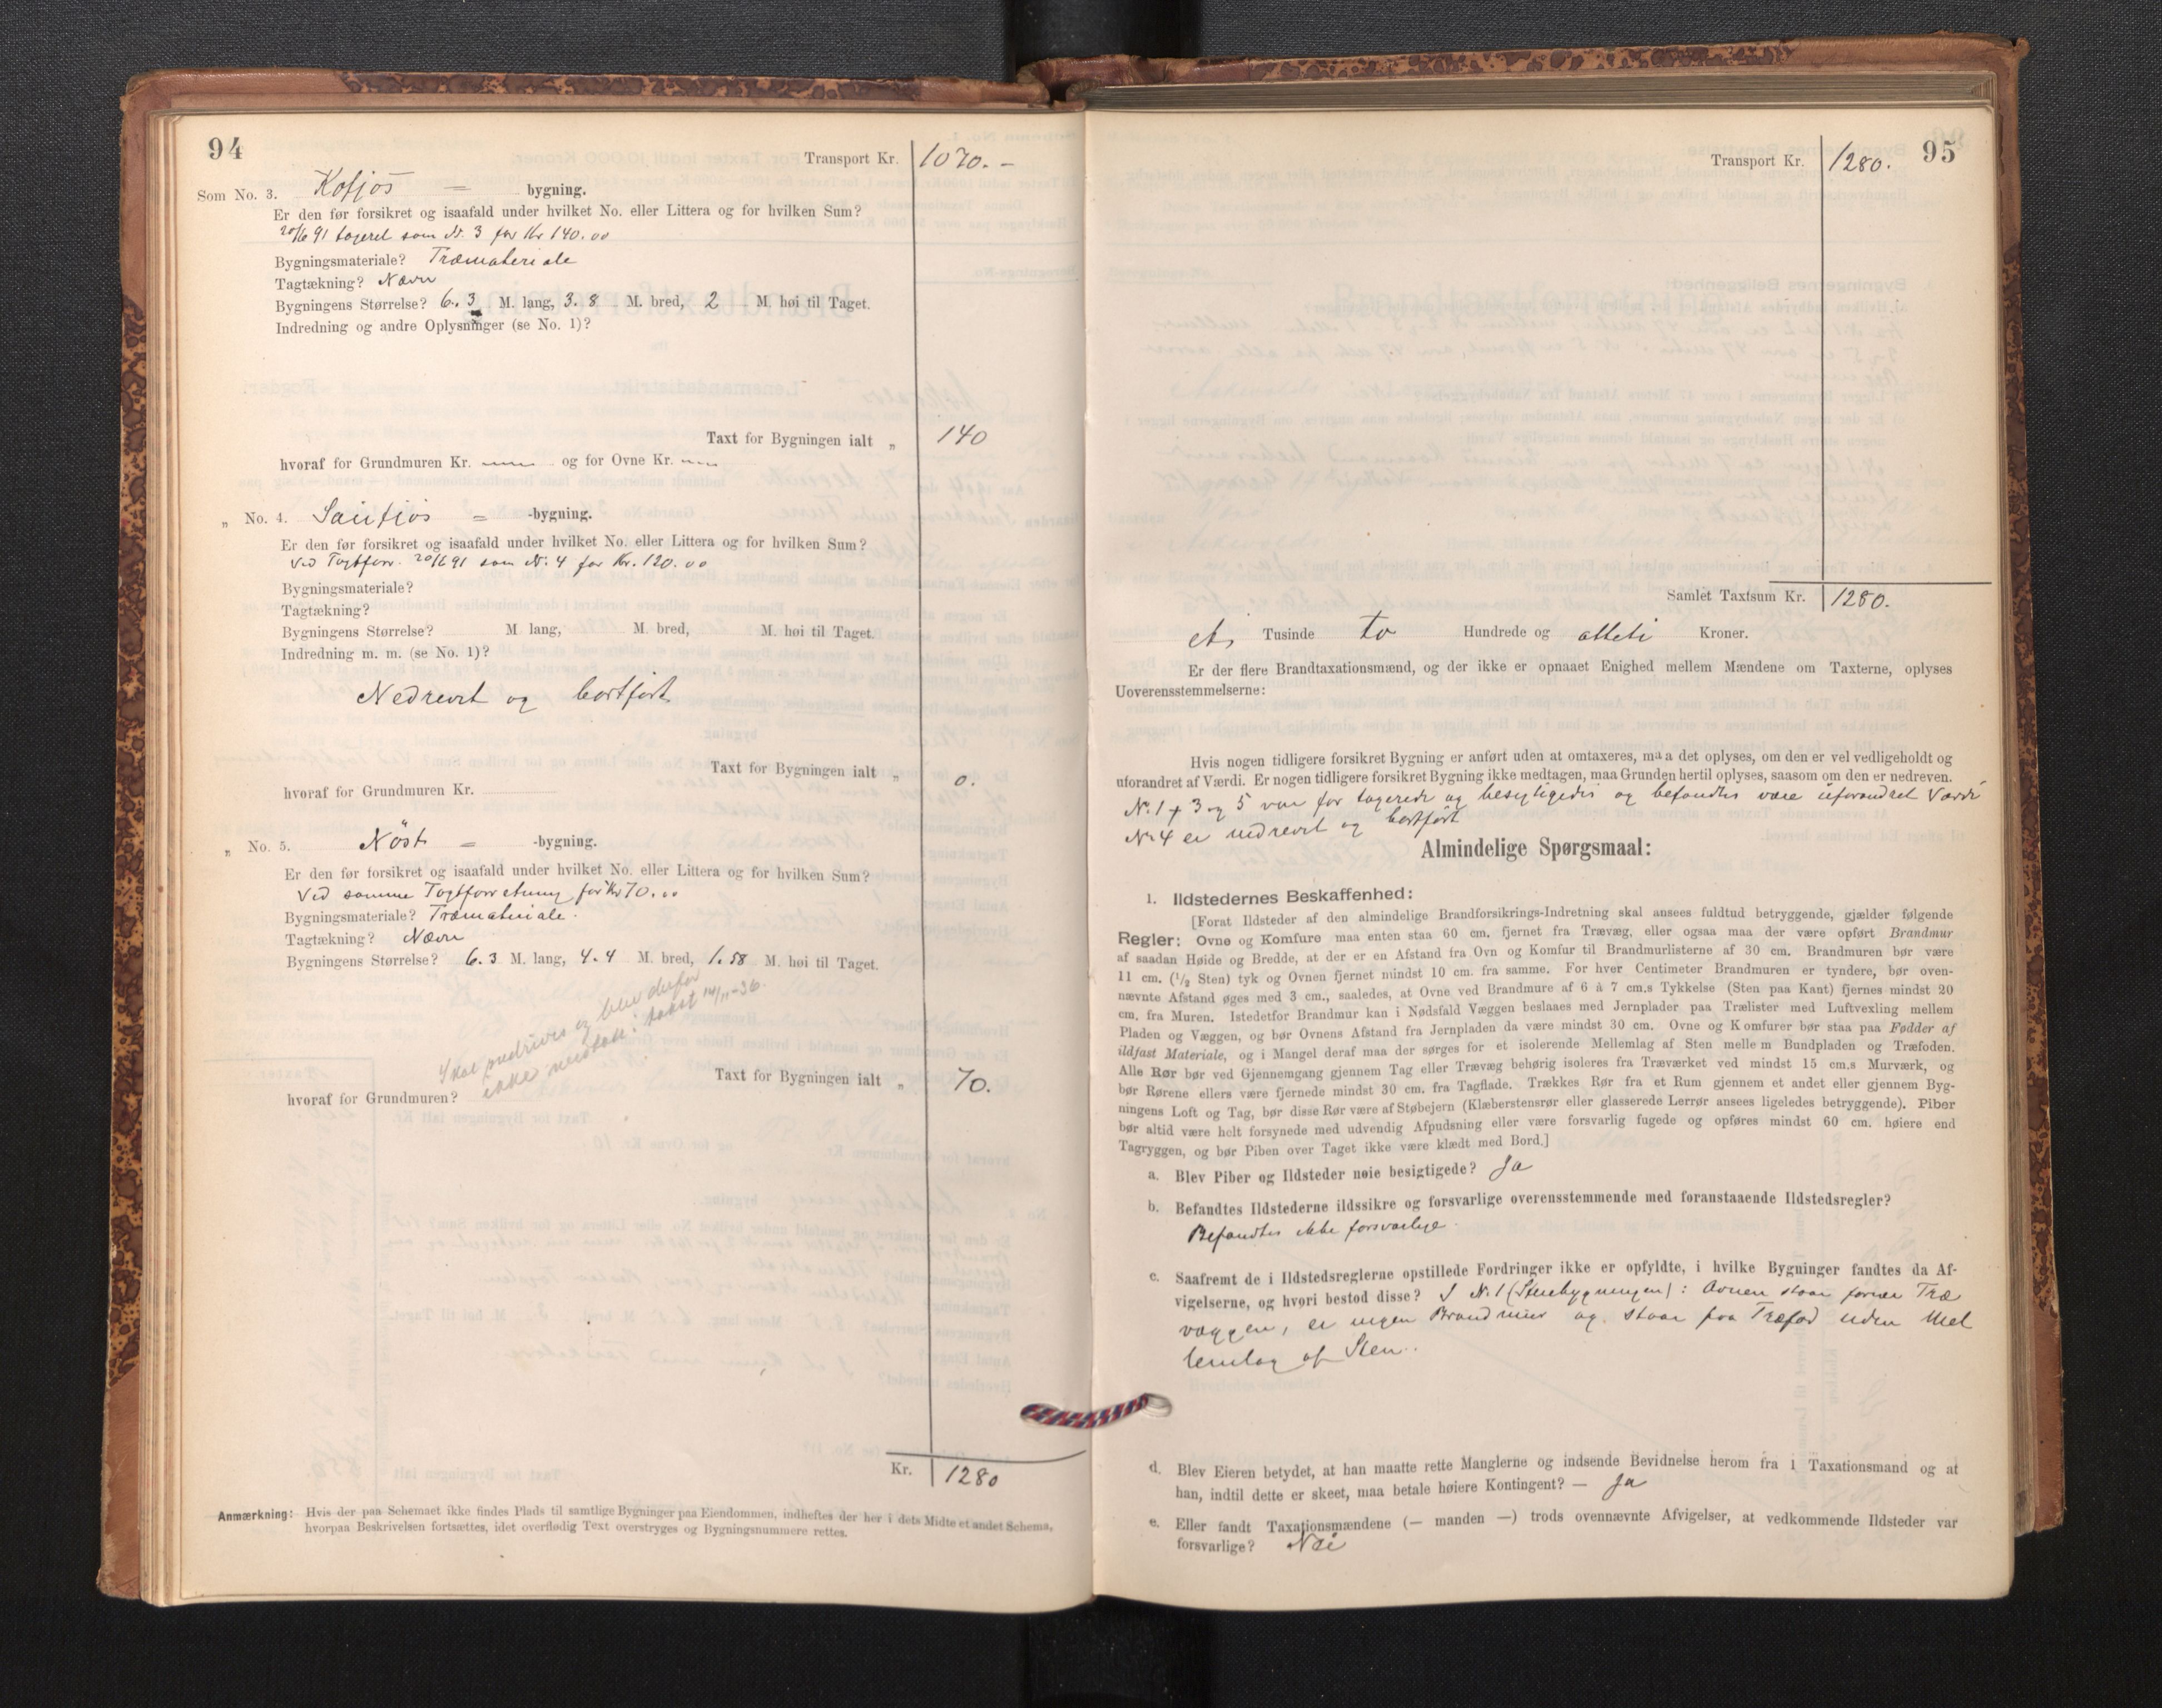 94
Transport Kr. 1070. -
Som No. 3. Kofjös = bygning.
Er den før forsikret og isaafald under hvilket No. eller Littera og for hvilken Sum?
20/6 91 taxeret som N. 3 for Kr 140.00
Bygningsmateriale? Træmateriale
Tagtækning? Næver
Bygningens Størrelse? 6.3 M. lang, 3.8 M. bred, 2 M. høi til Taget.
Indredning og andre Oplysninger (se No. 1)?
Taxt for Bygningen ialt „ 140
hvoraf for Grundmuren Kr. og for Ovne Kr.
„ No. 4. Saufjös = -bygning.
Er den før forsikret og isaafald under hvilket No. eller Littera og for hvilken Sum?
Ved Taxtforr. 20/6 91 som N. 4 for Kr. 120.00
Bygningsmateriale?
Tagtækning?
Bygningens Størrelse? M. lang, M. bred, M. høi til Taget.
Indredning m. m. (se No. 1)?
Nedrevet og bortført
Taxt for Bygningen ialt „ 0.
hvoraf for Grundmuren Kr.
„ No. 5. Nöst = -bygning.
Er den før forsikret og isaafald under hvilket No. eller Littera og for hvilken Sum?
Ved samme Taxtforretning for Kr 70.00
Bygningsmateriale? Træmateriale.
Tagtækning? Næver
Bygningens Størrelse? 6.3 M. lang, 4.4 M. bred, 1.58 M. høi til Taget.
Skal nedrives og blev derfor
ikke medtatt i takst 14/11-36.
Taxt for Bygningen ialt „ 70.
hvoraf for Grundmuren?
Kr. 1280
Anmærkning: Hvis der paa Schemaet ikke findes Plads til samtlige Bygninger paa Eiendommen, indheftes der her i dets Midte et andet Schema,
hvorpaa Beskrivelsen fortsættes, idet overflødig Text overstryges og Bygningsnummere rettes.
95
Transport Kr. 1280.
Samlet Taxtsum Kr. 1280.
et Tusinde to Hundrede og otteti Kroner.
Er der flere Brandtaxationsmænd, og der ikke er opnaaet Enighed mellem Mændene om Taxterne, oplyses
Uoverensstemmelserne:
Hvis nogen tidligere forsikret Bygning er anført uden at omtaxeres, maa det oplyses, om den er vel vedligeholdt og
uforandret af Værdi. Er nogen tidligere forsikret Bygning ikke medtagen, maa Grunden hertil oplyses, saasom om den er nedreven.
N. 1 + 3 og 5 var før taxerede og besigtigedes og befandtes være uforandret Værdi
Nr 4 er nedrevet og bortført
Almindelige Spørgsmaal:
1. Ildstedernes Beskaffenhed:
[Forat Ildsteder af den almindelige Brandforsikrings-Indretning skal ansees fuldtud betryggende, gjælder følgende
Regler: Ovne og Komfure maa enten staa 60 cm. fjernet fra Trævæg, eller ogsaa maa der være opført Brandmur
af saadan Høide og Bredde, at der er en Afstand fra Ovn og Komfur til Brandmurlisterne af 30 cm. Brandmuren bør være
11 cm. (1/2 Sten) tyk og Ovnen fjernet mindst 10 cm. fra samme. For hver Centimeter Brandmuren er tyndere, bør oven-
nævnte Afstand øges med 3 cm., saaledes, at Ovne ved Brandmure af 6 à 7 cm.s Tykkelse (Sten paa Kant) fjernes mindst 20
cm. fra Muren. Istedetfor Brandmur kan i Nødsfald Væggen beslaaes med Jernplader paa Trælister med Luftvexling mellem
Pladen og Væggen, og bør Ovnens Afstand fra Jernpladen da være mindst 30 cm. Ovne og Komfurer bør staa paa Fødder af
ildfast Materiale, og i Mangel deraf maa der sørges for et isolerende Mellemlag af Sten mellem Bundpladen og Træfoden.
Alle Rør bør ved Gjennemgang gjennem Tag eller Trævæg behørig isoleres fra Træværket ved mindst 15 cm.s Murværk, og
bør Rørene ellers være fjernede mindst 30 cm. fra Tagflade. Trækkes Rør fra et Rum gjennem et andet eller gjennem Byg-
ningens Loft og Tag, bør disse Rør være af Støbejern (Klæberstensrør eller glasserede Lerrør ansees ligeledes betryggende). Piber
bør altid være helt forsynede med udvendig Afpudsning eller være forsvarlig fugede og opføres mindst 60 cm. høiere end
Tagryggen, og bør Piben over Taget ikke være klædt med Bord.]
a. Blev Piber og Ildsteder nøie besigtigede? Ja
b. Befandtes Ildstederne ildssikre og forsvarlige overensstemmende med foranstaaende Ildstedsregler?
Befandtes ikke forsvarlige.
c. Saafremt de i Ildstedsreglerne opstillede Fordringer ikke er opfyldte, i hvilke Bygninger fandtes da Af-
vigelserne, og hvori bestod disse? I N. 1 (Stuebygningen): Ovnen staar for nær Træ
væggen, er ingen Brandmur og staar paa Træfod uden Mel
lemlag af Sten.
d. Blev Eieren betydet, at han maatte rette Manglerne og indsende Bevidnelse herom fra 1 Taxationsmand og at
han, indtil dette er skeet, maa betale høiere Kontingent? — Ja
e. Eller fandt Taxationsmændene (— manden —) trods ovennævnte Afvigelser, at vedkommende Ildsteder var
forsvarlige? Nei